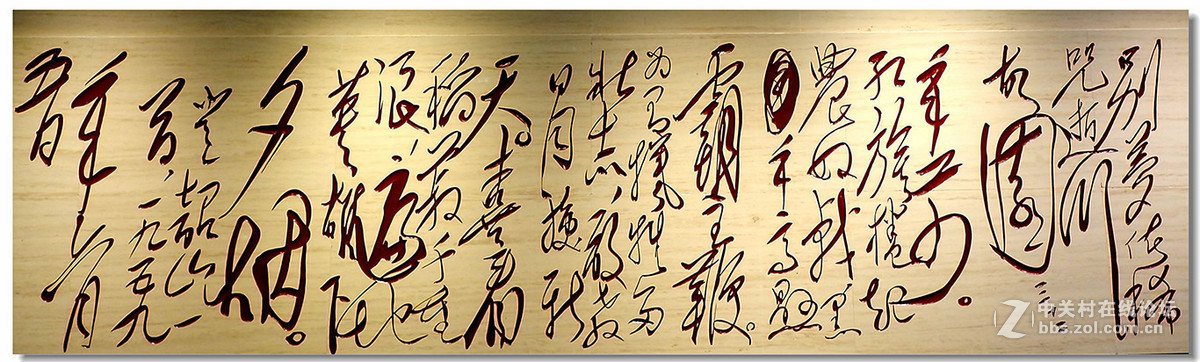 别梦依稀
咒逝川
故园三十二
年前。
红旗捲起
農奴戟黑
手高懸
霸主鞭。
为有犧牲多
壮志,敢教
日月換新
天。喜看
稻菽千重
浪,遍地
英雄下
夕烟。
登韶山一
首,一九五九
年六月
五日
中关村在线论坛
bbs.zol.com.cn